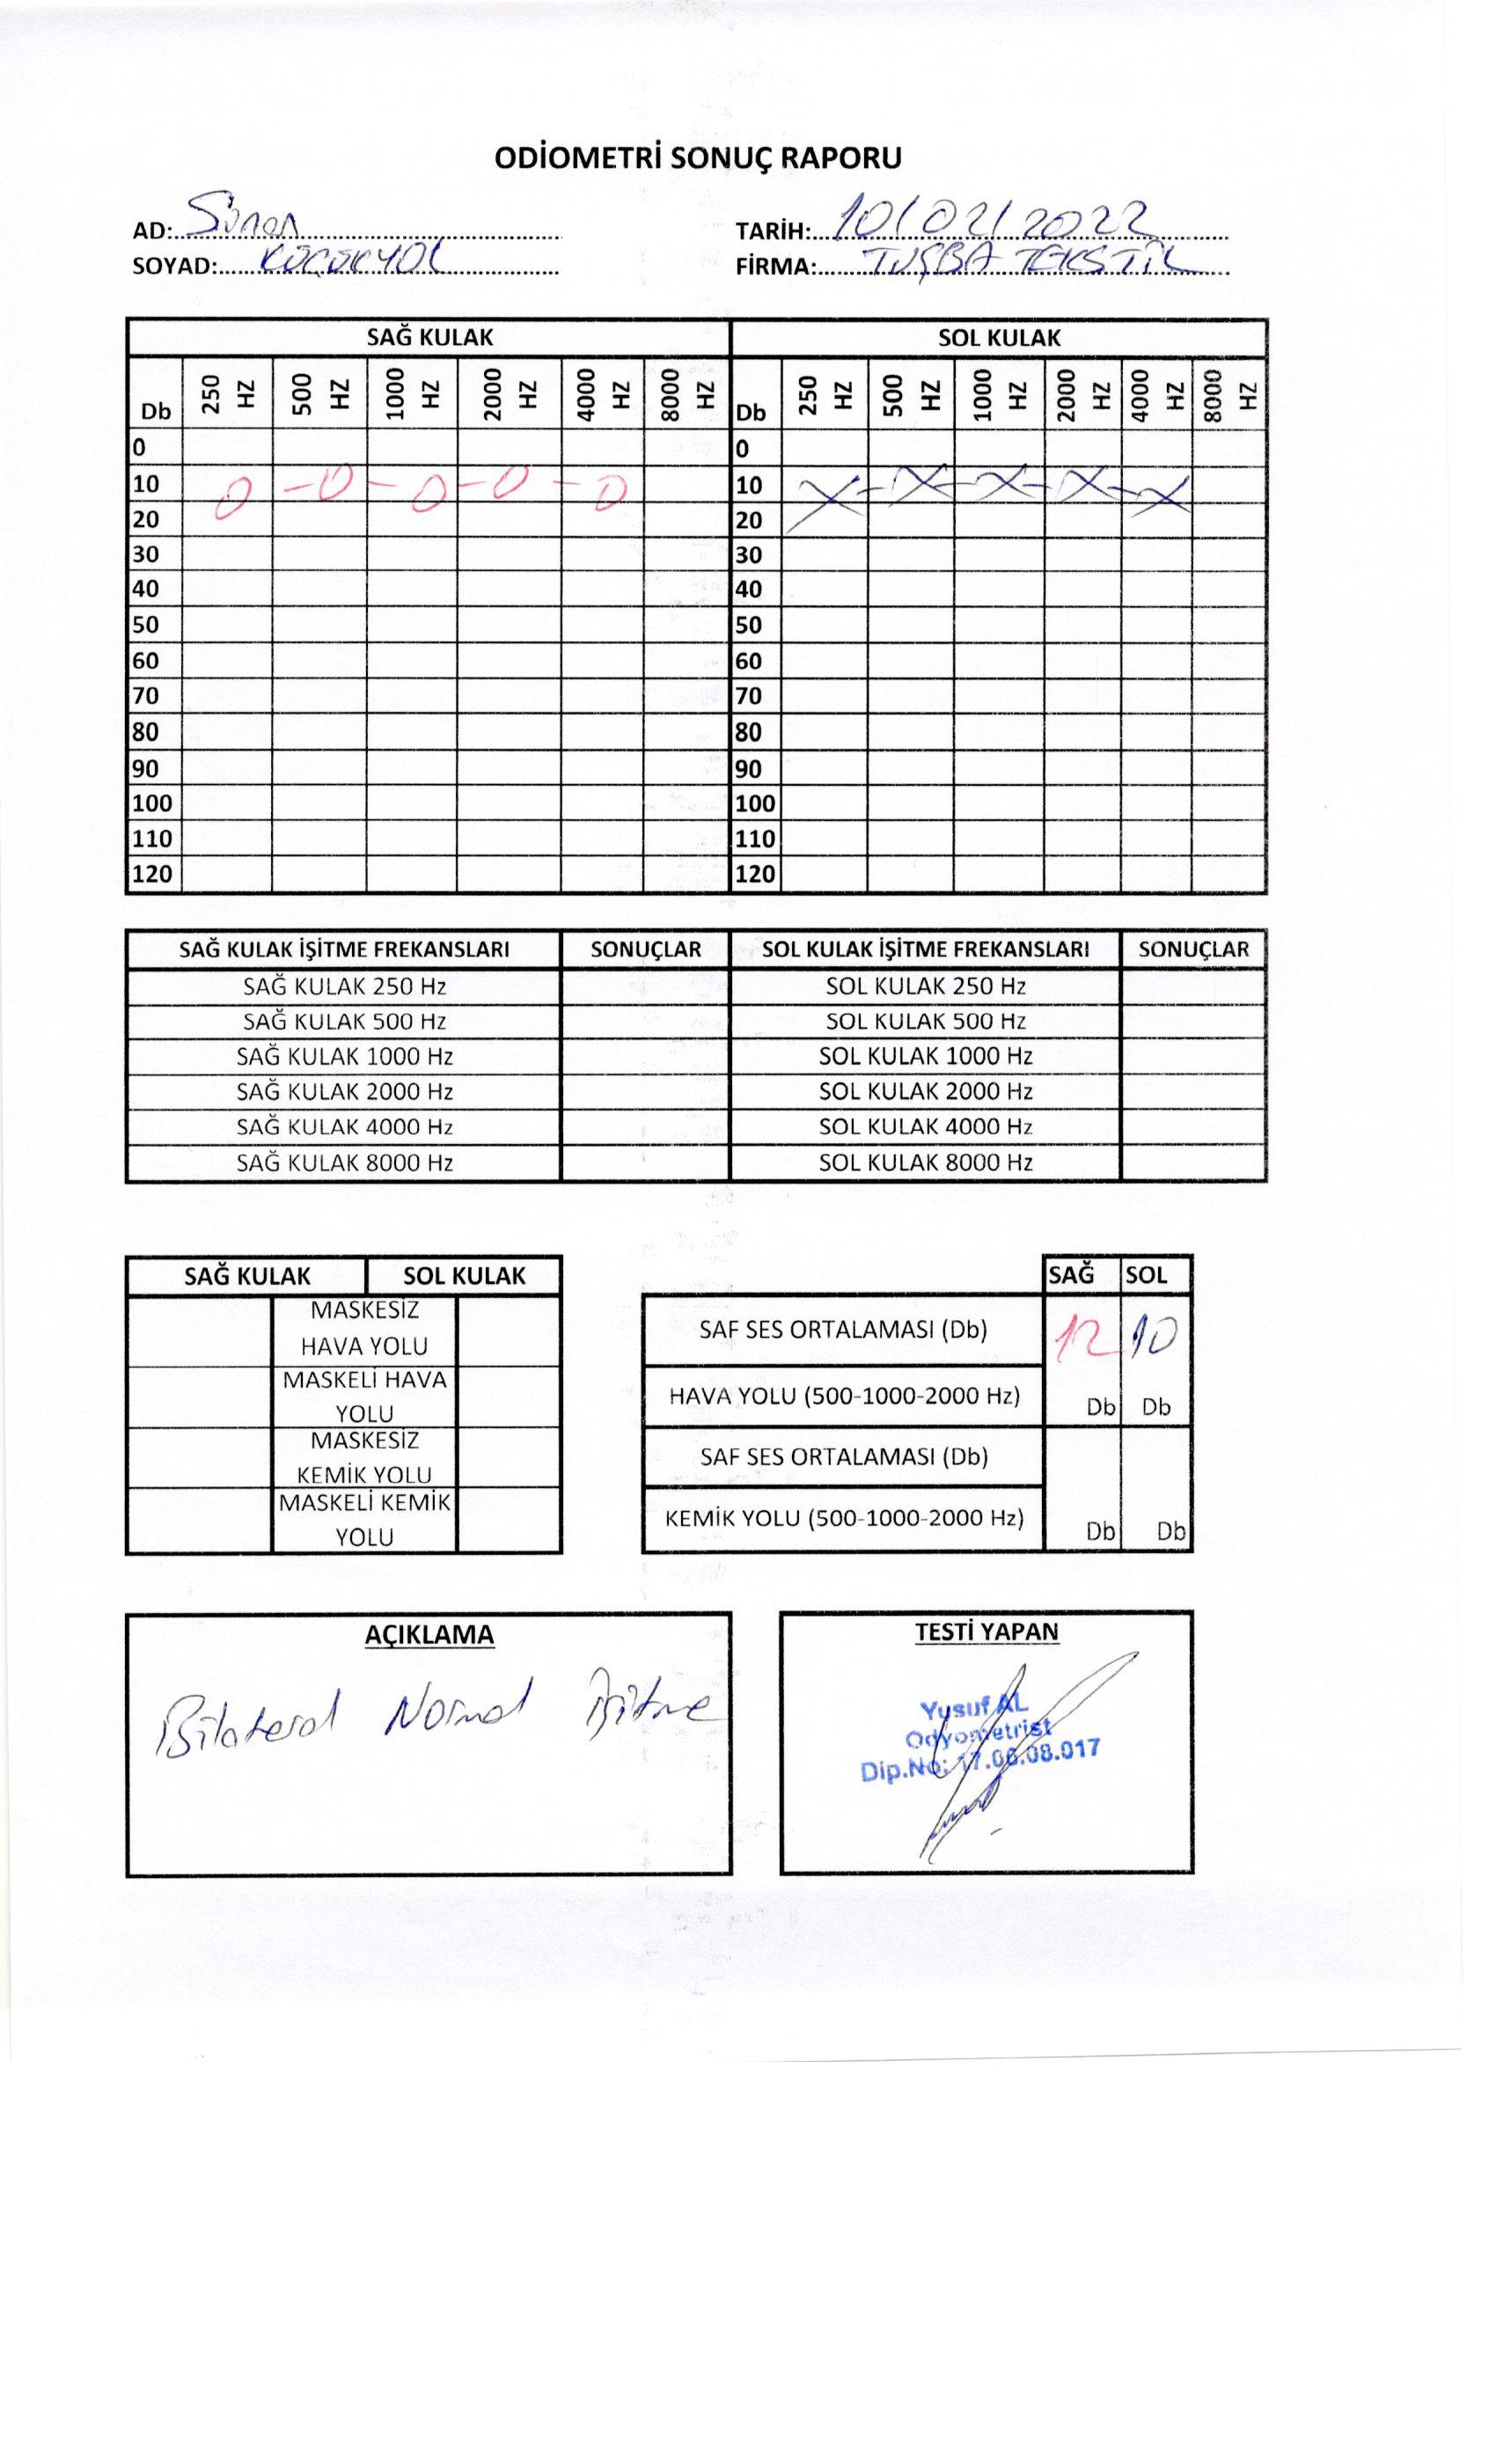 ODİOMETRİ SONUÇ RAPORU
AD: Sinan TARİH: 10/02/2022
SOYAD: KÜÇÜKYOL FİRMA: TUŞBA TEKSTİL
SAĞ KULAK SOL KULAK
Db 250 HZ 500 HZ 1000 HZ 2000 HZ 4000 HZ 8000 HZ Db 250 HZ 500 HZ 1000 HZ 2000 HZ 4000 HZ 8000 HZ
0 0
10 0-0-0-0-0 10 X-X-X-X-X
20 20
30 30
40 40
50 50
60 60
70 70
80 80
90 90
100 100
110 110
120 120
SAĞ KULAK İŞİTME FREKANSLARI SONUÇLAR SOL KULAK İŞİTME FREKANSLARI SONUÇLAR
SAĞ KULAK 250 Hz SOL KULAK 250 Hz
SAĞ KULAK 500 Hz SOL KULAK 500 Hz
SAĞ KULAK 1000 Hz SOL KULAK 1000 Hz
SAĞ KULAK 2000 Hz SOL KULAK 2000 Hz
SAĞ KULAK 4000 Hz SOL KULAK 4000 Hz
SAĞ KULAK 8000 Hz SOL KULAK 8000 Hz
SAĞ KULAK SOL KULAK
MASKESİZ
HAVA YOLU
MASKELİ HAVA
YOLU
MASKESİZ
KEMİK YOLU
MASKELİ KEMİK
YOLU
SAĞ SOL
SAF SES ORTALAMASI (Db) 12 10
HAVA YOLU (500-1000-2000 Hz) Db Db
SAF SES ORTALAMASI (Db)
KEMİK YOLU (500-1000-2000 Hz) Db Db
AÇIKLAMA
Bilateral Normal İşitme
TESTİ YAPAN
Yusuf AL
Odyometrist
Dip.No: 17.06.08.017